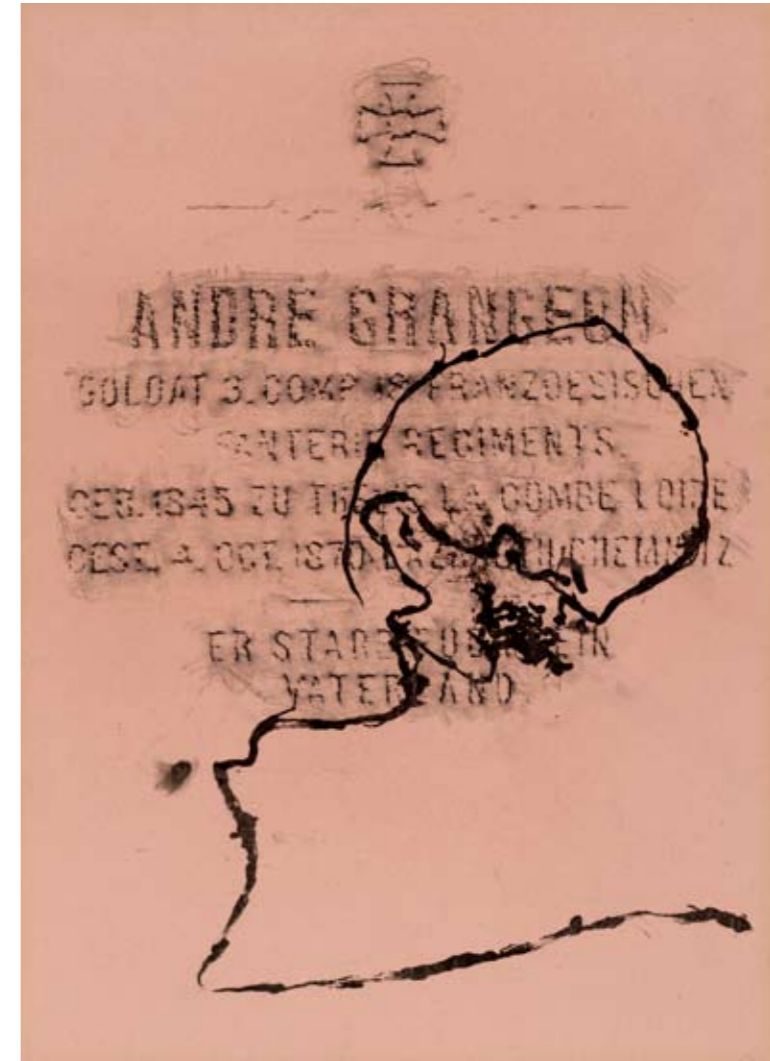 ANDRE GRANGEON
SOLDAT 3. COMP 18 FRANZOESISCHEN
FANTERIE REGIMENTS.
GEB. 1845 ZU LA COMBE
GEST. 4. OCT. 1870
ER STARB FUER SEIN
VATERLAND.